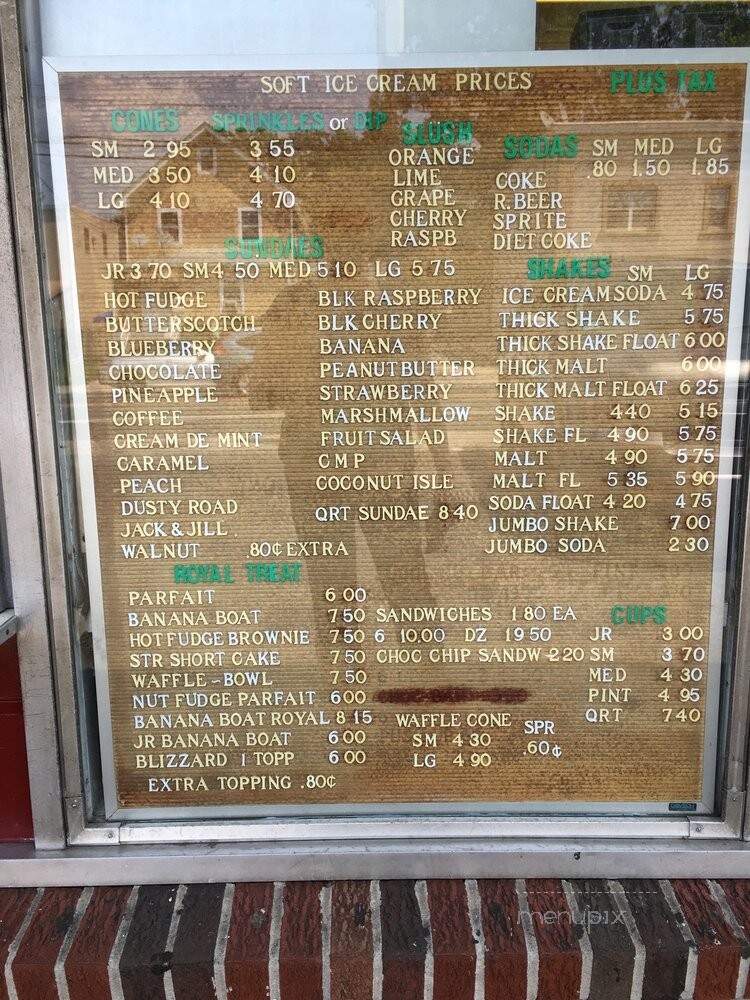 SOFT ICE CREAM PRICES PLUS TAX
CONES SPRINKLES or DIP
SM 2 95 3 55
MED 3 50 4 10
LG 4 10 4 70
SLUSH
ORANGE
LIME
GRAPE
CHERRY
RASPB
SODAS SM MED LG
.80 1.50 1.85
COKE
R.BEER
SPRITE
DIET COKE
SUNDAES
JR 3 70 SM 4 50 MED 5 10 LG 5 75
HOT FUDGE
BUTTERSCOTCH
BLUEBERRY
CHOCOLATE
PINEAPPLE
COFFEE
CREAM DE MINT
CARAMEL
PEACH
DUSTY ROAD
JACK & JILL .
WALNUT .80¢ EXTRA
BLK RASPBERRY
BLK CHERRY
BANANA
PEANUT BUTTER
STRAWBERRY
MARSHMALLOW
FRUIT SALAD
C M P
COCONUT ISLE
QRT SUNDAE 8 40
SHAKES SM LG
ICE CREAM SODA 4 75
THICK SHAKE 5 75
THICK SHAKE FLOAT 6 00
THICK MALT 6 00
THICK MALT FLOAT 6 25
SHAKE 4 40 5 15
SHAKE FL 4 90 5 75
MALT 4 90 5 75
MALT FL 5 35 5 90
SODA FLOAT 4 20 4 75
JUMBO SHAKE 7 00
JUMBO SODA 2 30
ROYAL TREAT
PARFAIT 6 00
BANANA BOAT 7 50
HOT FUDGE BROWNIE 7 50
STR SHORT CAKE 7 50
WAFFLE - BOWL 7 50
NUT FUDGE PARFAIT 6 00
BANANA BOAT ROYAL 8 15
JR BANANA BOAT 6 00
BLIZZARD 1 TOPP 6 00
EXTRA TOPPING .80¢
SANDWICHES 1 80 EA
6 10.00 DZ 19 50
CHOC CHIP SANDW - 2 20
WAFFLE CONE SPR
SM 4 30 .60¢
LG 4 90
CUPS
JR 3 00
SM 3 70
MED 4 30
PINT 4 95
QRT 7 40
menupix